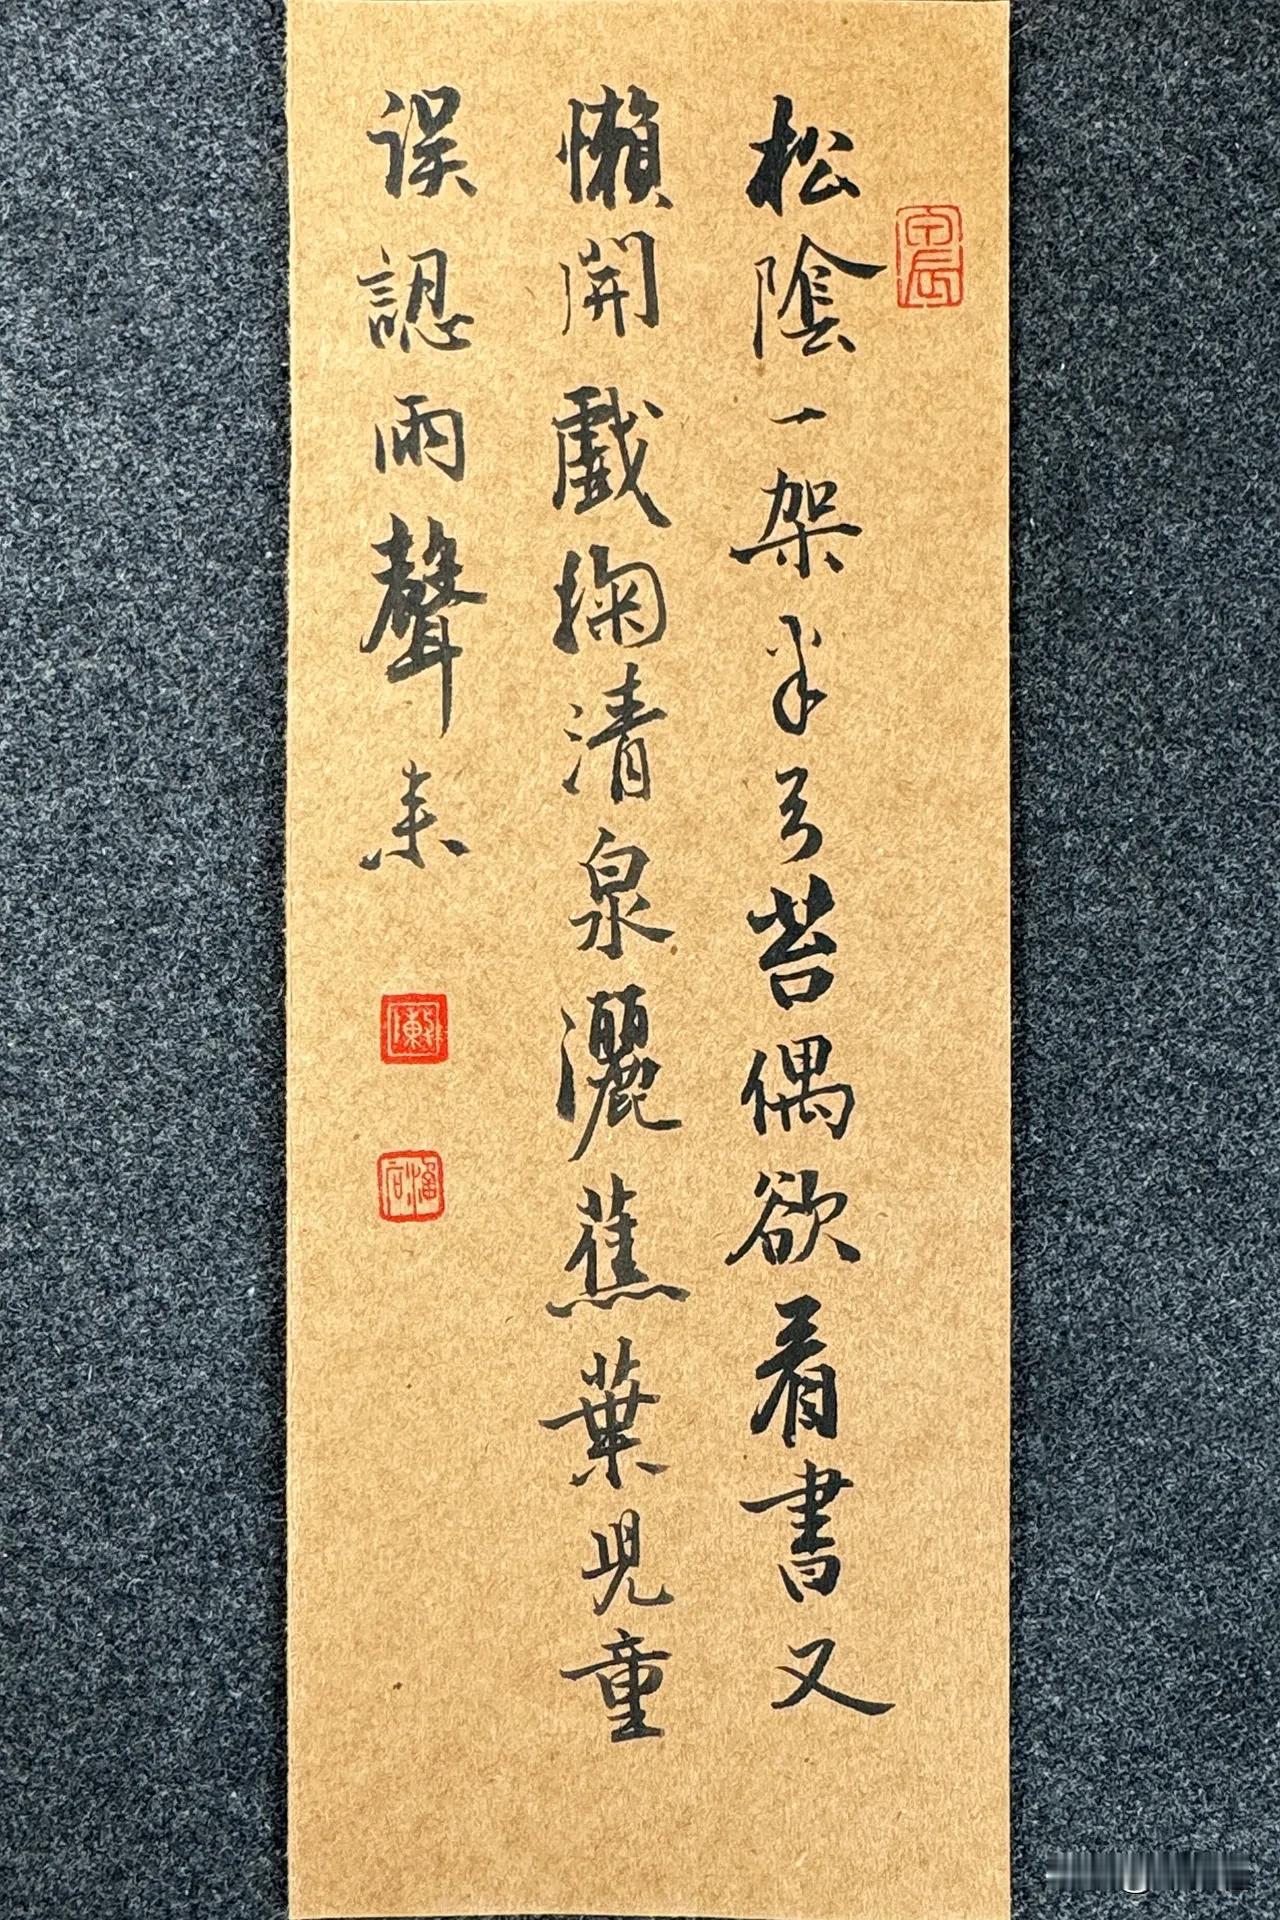 甲辰
松陰一架半弓苔偶欲看書又
懶開戲掬清泉灑蕉葉兒童
誤認雨聲来